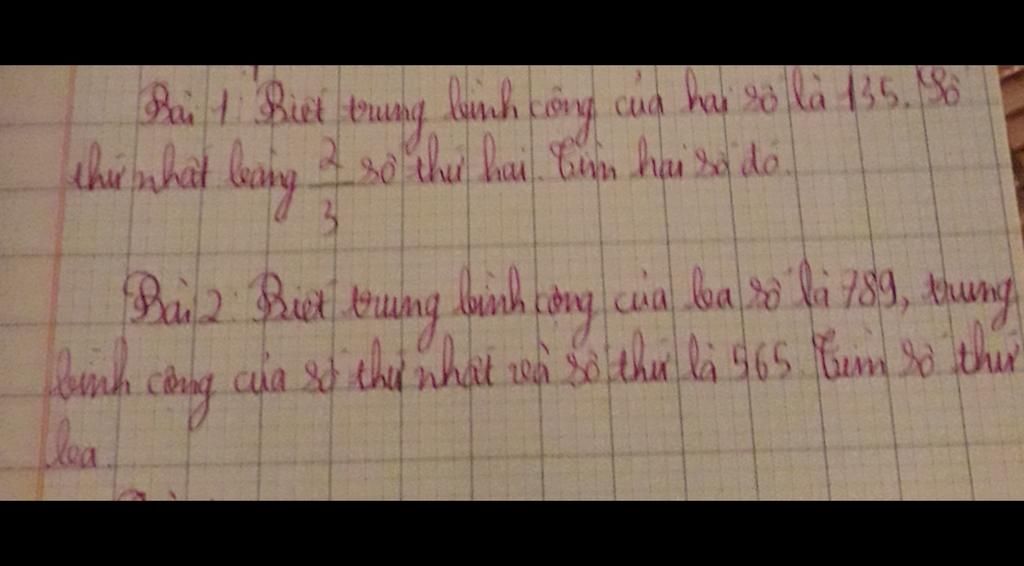 Bài 1: Biết trung bình cộng của hai số là 135. Số
thứ nhất bằng 2/3 số thứ hai. Tìm hai số đó.
Bài 2: Biết trung bình cộng của ba số là 789, trung
bình cộng của số thứ nhất và số thứ là 965. Tìm số thứ
ba.